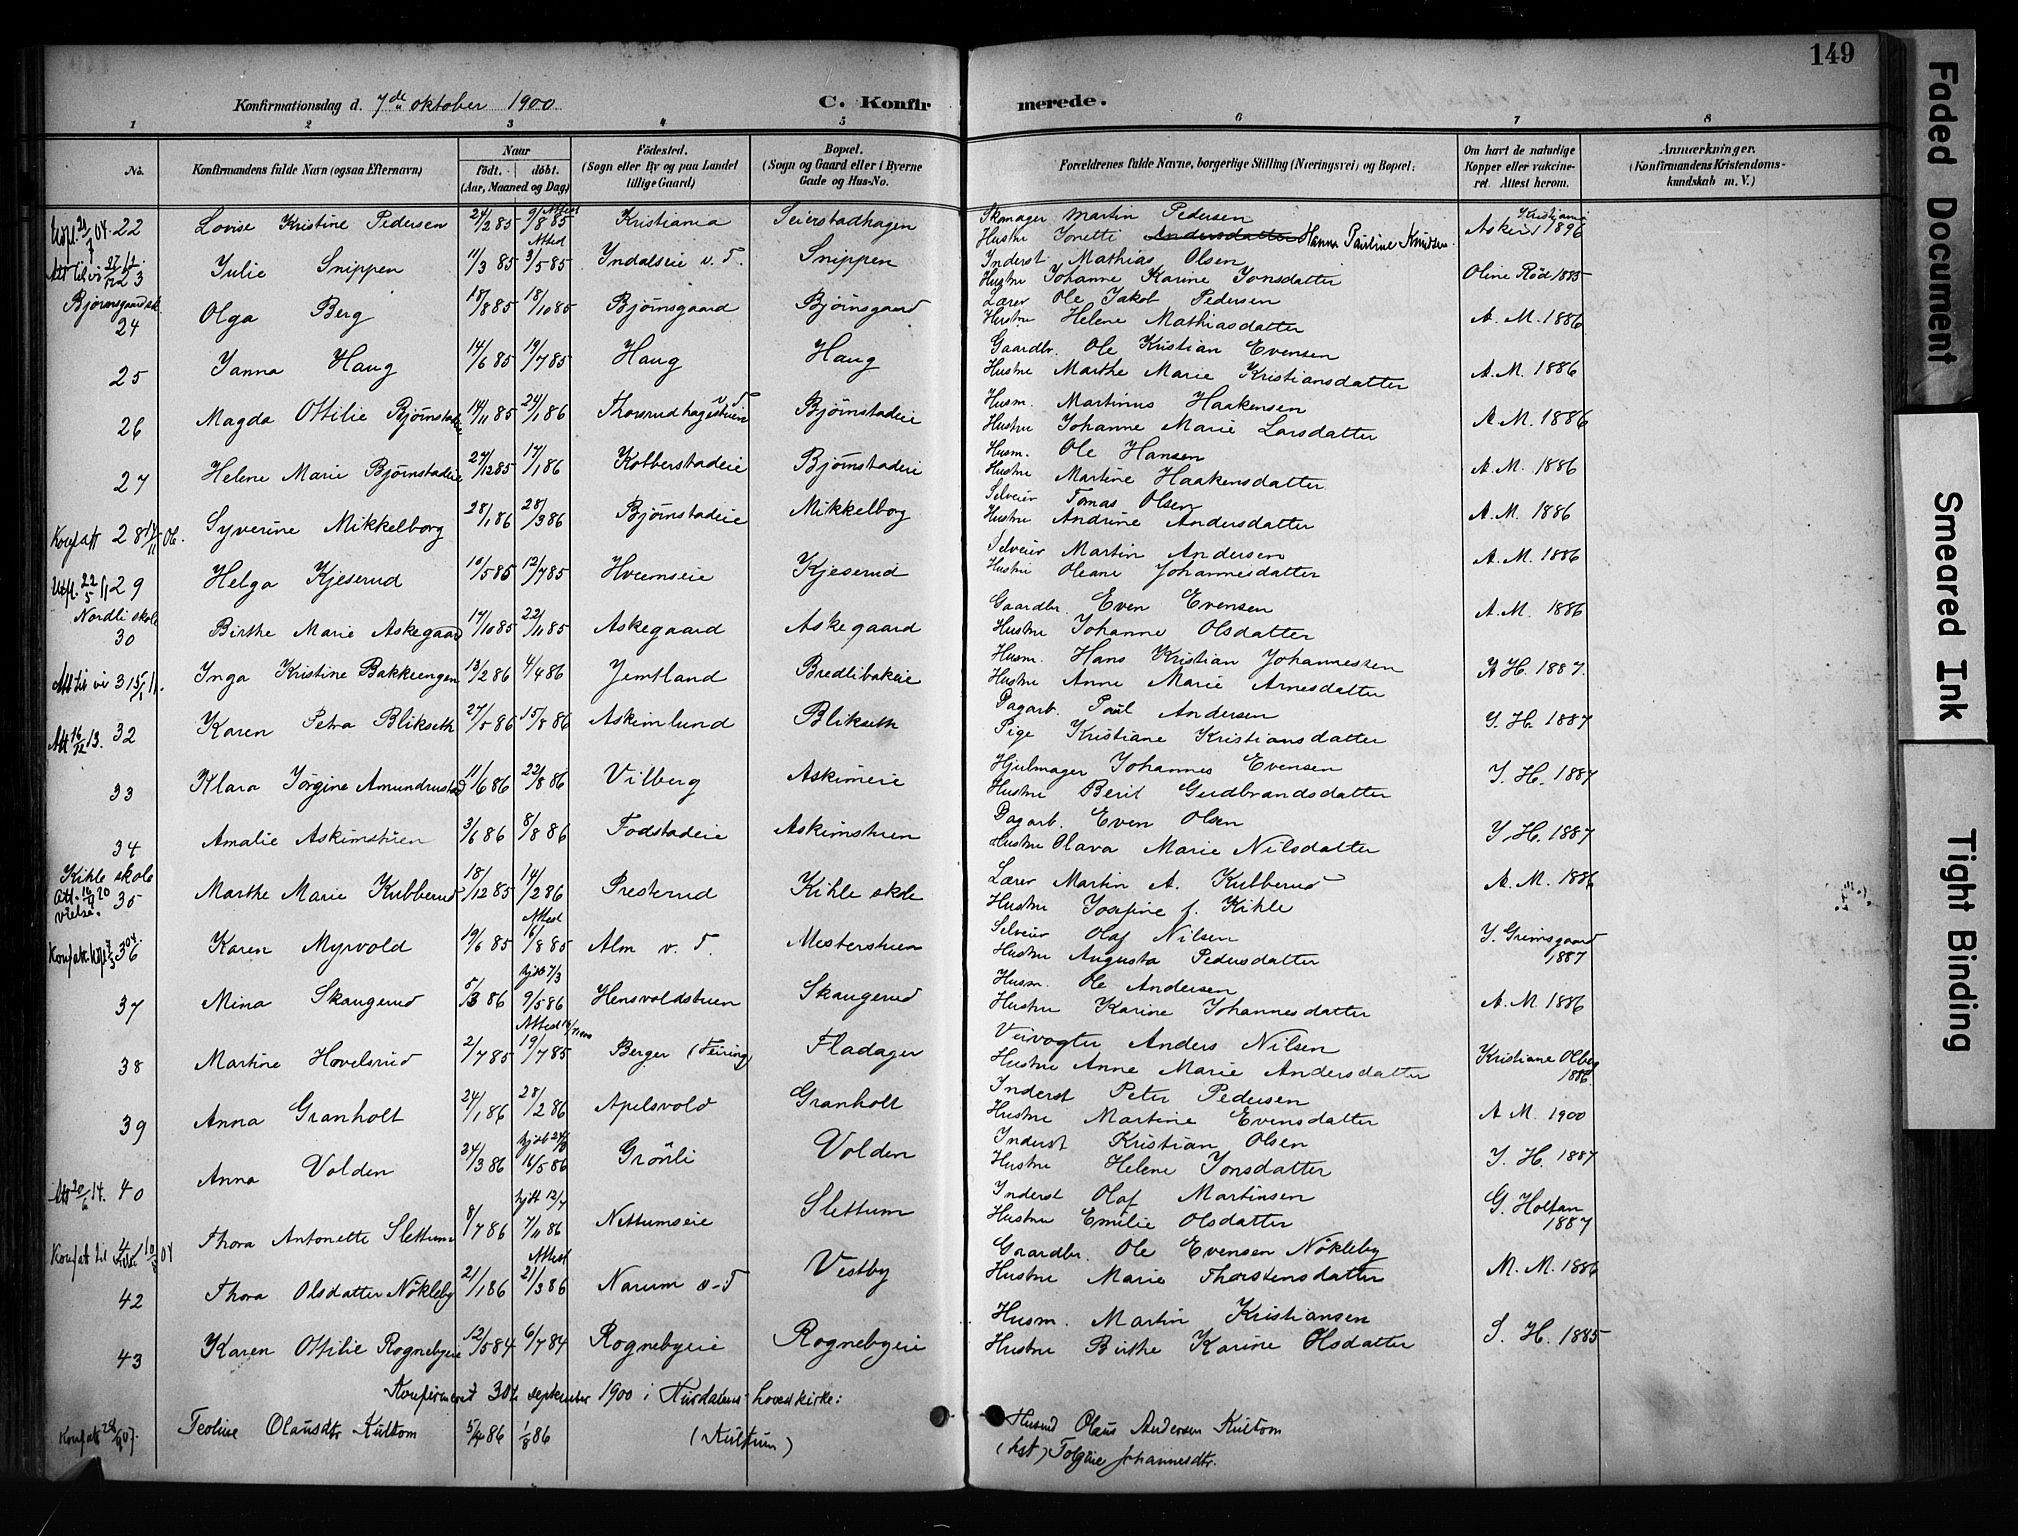 149
Konfirmationsdag d. 7de oktober 1900.
C. Konfirmerede.
1 2 3 4 5 6 7 8
No.
Konfirmandens fulde Navn (ogsaa Efternavn)
Naar
født. døbt.
(Aar, Maaned og Dag)
Fødested.
(Sogn eller By og paa Landet
tillige Gaard)
Bopæl.
(Sogn og Gaard eller i Byerne
Gade og Hus-No.
Forældrenes fulde Navne, borgerlige Stilling (Næringsvei) og Bopæl:
Om havt de naturlige
Kopper eller vakcine-
ret. Attest herom.
Anmærkninger.
(Konfirmandens Kristendoms-
kundskab m. V.)
22 Lovise Kristine Pedersen 24/2 85 9/8 85 Attest Kristiania Seierstadhagen Skomager Martin Pedersen Kristiania
Hustru Jonetti Andersdatter Hanna Pauline Knudsen. 1896
23 Julie Snippen 11/3 85 3/5 85 Attest Indalseie v. T. Snippen Inderst Mathias Olsen
Hustru Johanne Karine Jonsdatter Oline Rød 1885
Bjørnsgaard sk.
24 Olga Berg 18/8 85 18/10 85 Bjørnsgaard Bjørnsgaard Lærer Ole Jakob Pedersen
Hustru Helene Mathiasdatter A. M. 1886
25 Janna Haug 14/6 85 19/7 85 Haug Haug Gaardbr. Ole Kristian Evensen
Hustru Marthe Marie Kristiansdatter A. M. 1886
26 Magda Ottilie Bjørnstadeie 14/11 85 24/1 86 v. T. Bjørnstadeie Husm. Martinus Haakensen
Hustru Johanne Marie Larsdatter A. M. 1886
27 Helene Marie Bjørnstadeie 27/12 85 17/1 86 Kolberstadeie Bjørnstadeie Husm. Ole Hansen
Hustru Martine Haakensdatter A. M. 1886
28 Syverine Mikkelborg 28/1 86 28/3 86 Bjørnstadeie Mikkelborg Selveier Tomas Olsen
Hustru Andrine Andersdatter A. M. 1886
29 Helga Kjeserud 10/5 85 12/7 85 Hveemseie Kjeserud Selveier Martin Andersen
Hustru Oleane Johannesdatter A. M. 1886
Nordli skole
30 Birthe Marie Askegaard 17/10 85 22/11 85 Askegaard Askegaard Gaardbr. Even Evensen
Hustru Johanne Olsdatter A. M. 1886
31 Inga Kristine Bakkeengen 13/2 86 4/4 86 Jemtland Bredlibakeie Husm. Hans Kristian Johannessen
Hustru Anne Marie Arnesdatter H. 1887.
32 Karen Petra Blikseth 27/5 86 15/8 86 Askimlund Blikseth Dagarb. Paul Andersen
Pige Kristiane Kristiansdatter J. H. 1887
33 Klara Jørgine Amundrustad 11/6 86 22/8 86 Vilberg Askimeie Hjulmager Johannes Evensen
Hustru Berit Gudbrandsdatter J. H. 1887
34 Amalie Askimstuen 3/6 86 8/8 86 Fodstadeie Askimstuen Dagarb. Even Olsen
Hustru Olava Marie Nilsdatter J. H. 1887
Kihle skole
35 Marthe Marie Kubberud 18/12 85 14/2 86 Presterud Kihle skole Lærer Martin A. Kubberud
Hustru Josefine f. Kihle A. M. 1886
36 Karen Myrvold 19/6 85 16/8 85 Attest Alm v. T. Mesterstuen Selveier Olaf Nilsen
Hustru Augusta Pedersdatter J. Grimsgaard 1887
37 Mina Skaugerud 5/3 86 hjdt 7/3 9/5 86 Hensvoldstuen Skaugerud Husm. Ole Andersen
Hustru Karine Johannesdatter A. M. 1886
38 Martine Hovelsrud 2/7 85 Attest 19/7 85 Berger (Feiring) Fladager Veivogter Anders Nilsen
Hustru Anne Marie Andersdatter Kristiane Olberg 1886
39 Anna Granholt 24/1 86 28/2 86 Apelsvold Granholt Inderst Peter Pedersen
Hustru Martine Evensdatter A. M. 1900
40 Anna Volden 24/3 86 16/5 86 Grønli Volden Inderst Kristian Olsen
Hustru Helene Jonsdatter J. H. 1887
Thora Antonette Slettum 8/7 86 hjdt 12/7 7/11 86 Nettumseie Slettum Inderst Olaf Martinsen
Hustru Emilie Olsdatter G. Holtan 1887
42 Thora Olsdatter Nøkleby 21/1 86 Attest 21/3 86 Narum v. T Vestby Gaardbr. Ole Evensen Nøkleby
Hustru Marie Thorstensdatter M. M. 1886
43 Karen Ottilie Rognebyeie 12/5 84 6/7 84 Rognebyeie Rognebyeie Husm. Martin Kristiansen
Hustru Birthe Karine Olsdatter J. H. 1885
Konfirmeret 30te september 1900 i Hurdalens hovedkirke:
Teoline Olausdtr Kultom 5/4 86 1/8 86 (Kultum) Husmd Olaus Andersen Kultom
(hst.) Johannesdtr.
Faded Document
Smeared Ink
Tight Binding